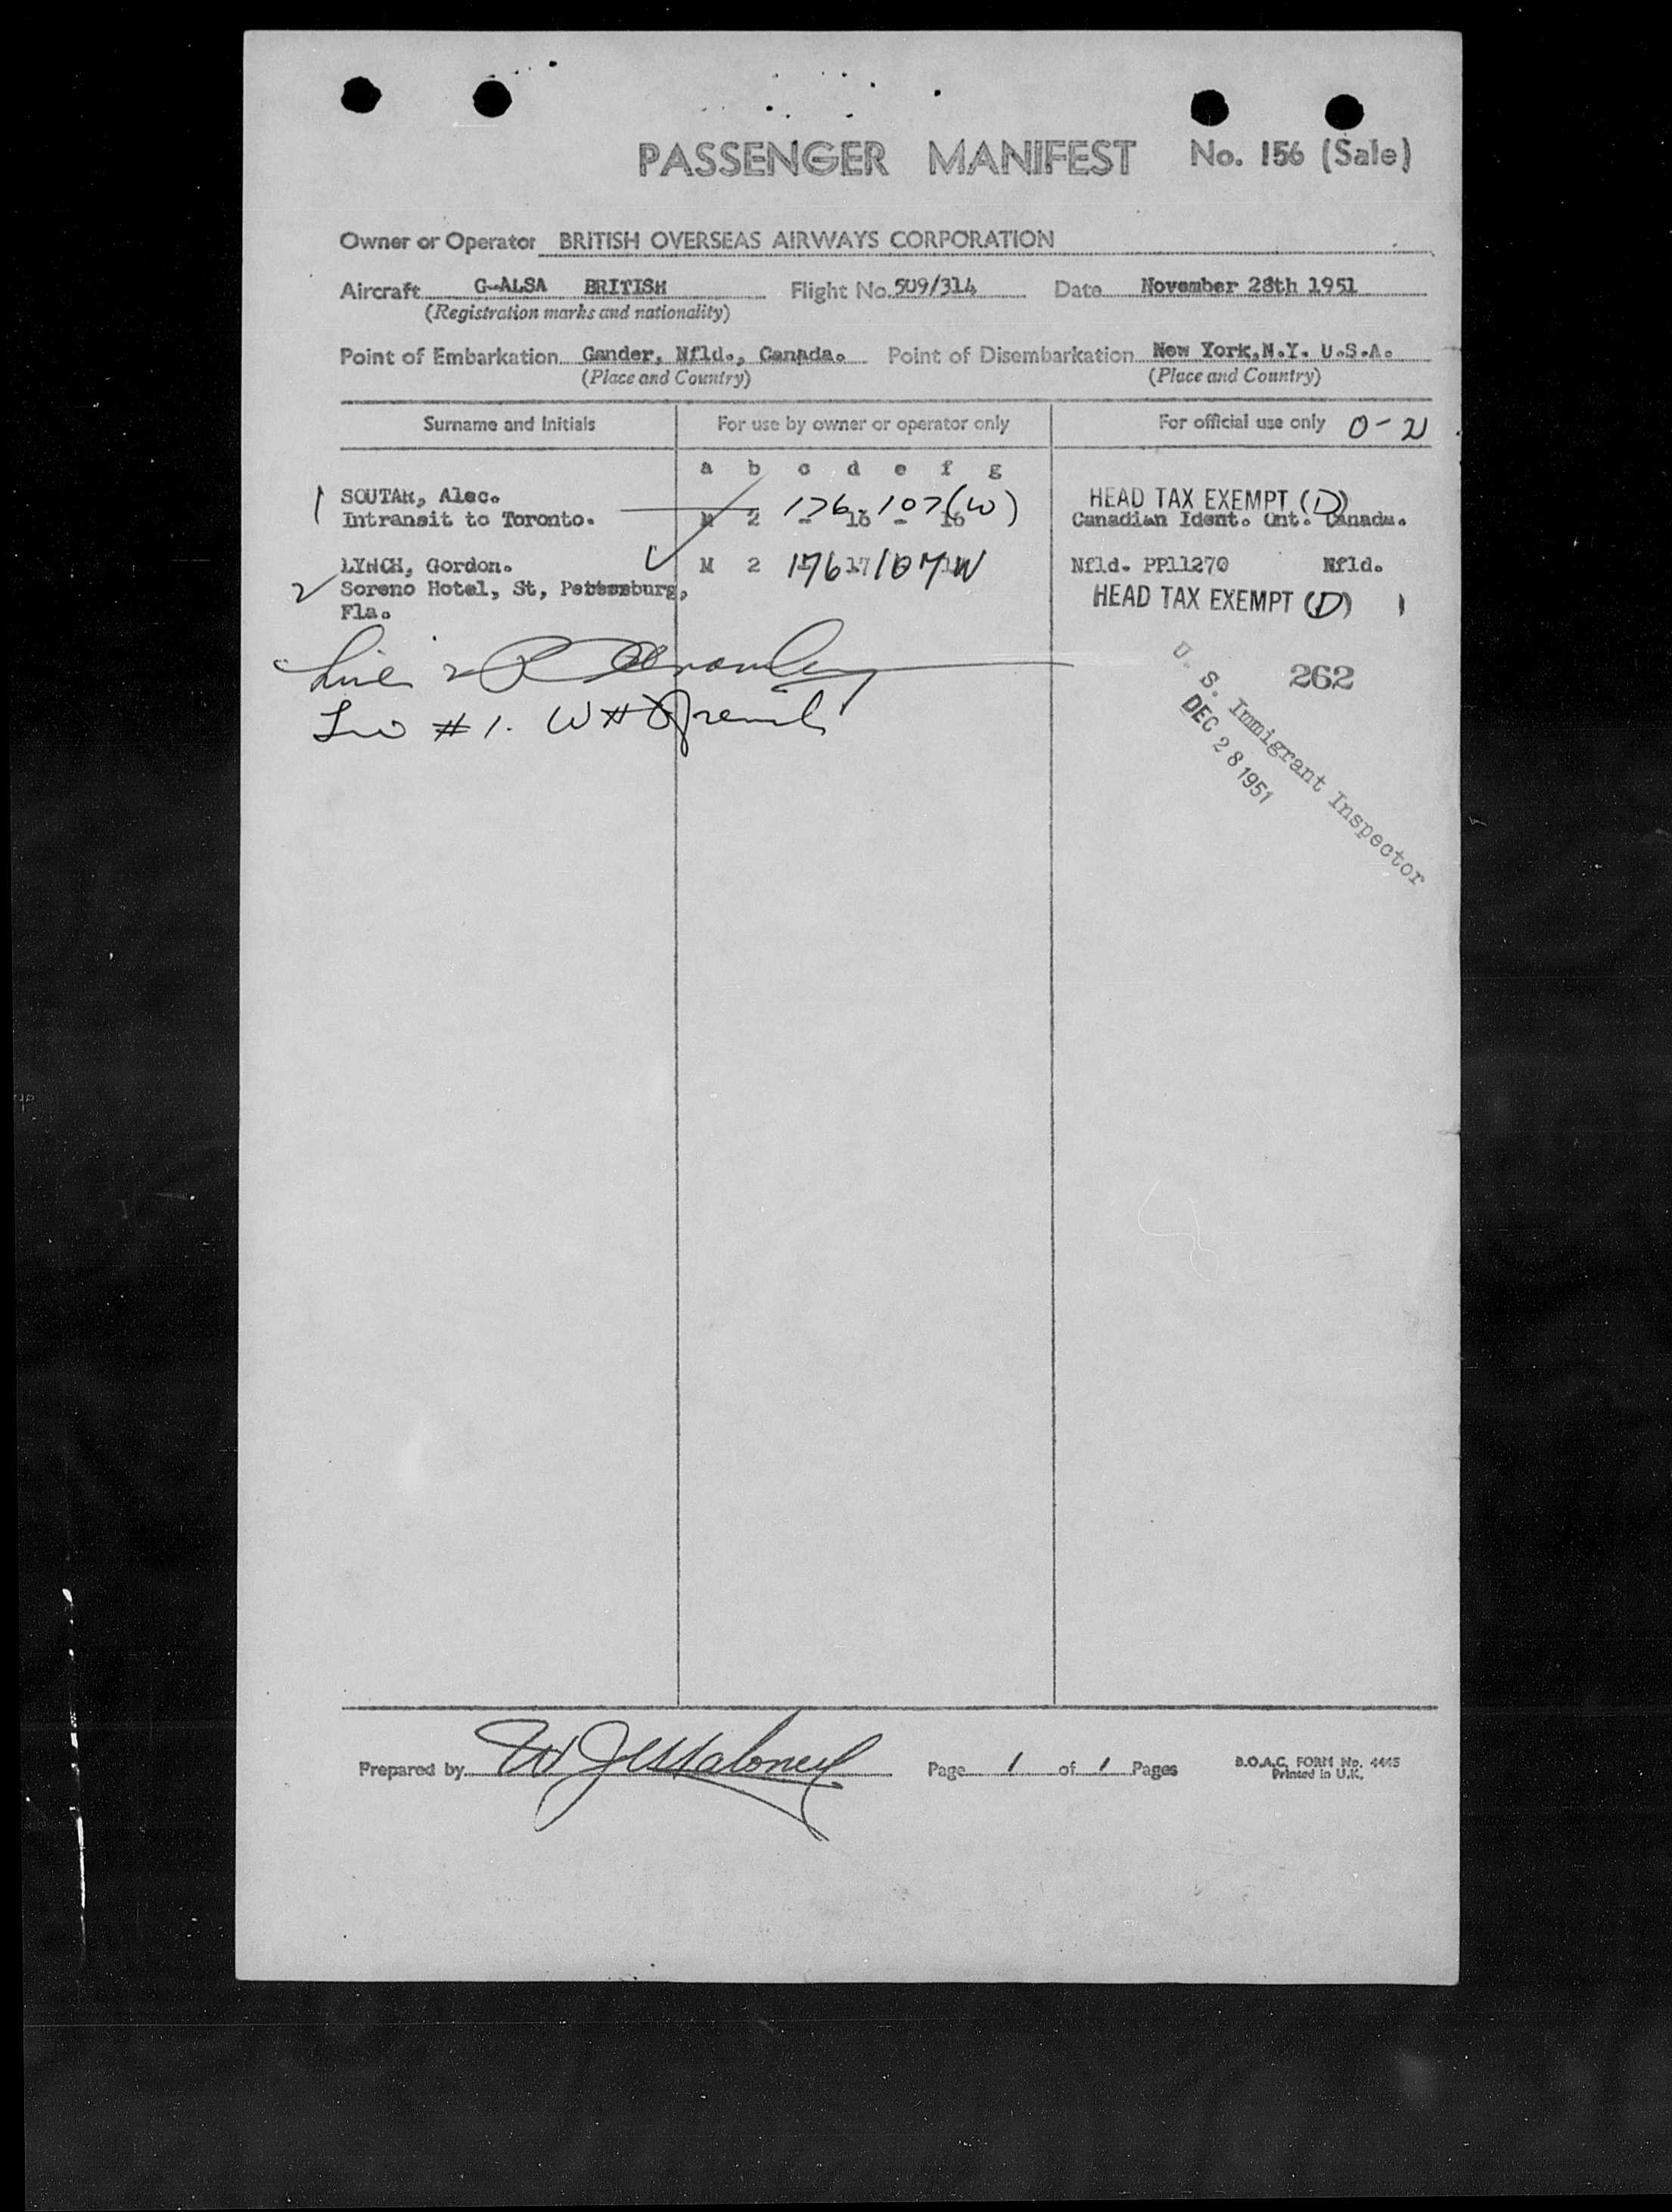 PASSENGER MANIFEST No. 156 (Sale)
Owner or Operator BRITISH OVERSEAS AIRWAYS CORPORATION
Aircraft G-ALSA BRITISH Flight No. 509/314 Date November 28th 1951
(Registration marks and nationality)
Point of Embarkation Gander, Nfld., Canada. Point of Disembarkation New York, N.Y. U.S.A.
(Place and Country) (Place and Country)
Surname and Initials For use by owner or operator only For official use only 0-2
a b c d e f g
1 SOUTAR, Alec. 176-107(W) HEAD TAX EXEMPT (D)
Intransit to Toronto. M 2 - 16 - 16 Canadian Ident. Ont. Canada.
LYNCH, Gordon. M 2 176 17 107 W Nfld. PP11270 Nfld.
2 Soreno Hotel, St, Petersburg, HEAD TAX EXEMPT (D) 1
Fla.
Line 2
#1. W H
262
U. S. Immigrant Inspector
DEC 28 1951
Prepared by W J Maloney Page 1 of 1 Pages B.O.A.C. FORM No. 4445
Printed in U.K.